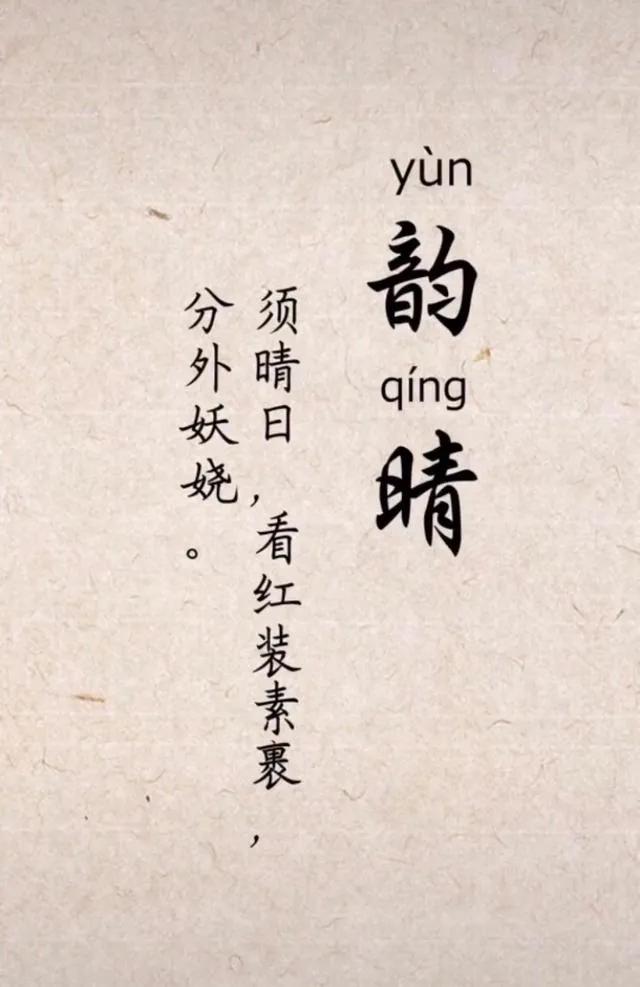 yùn
韵
qíng
晴
须晴日,看红装素裹,
分外妖娆。